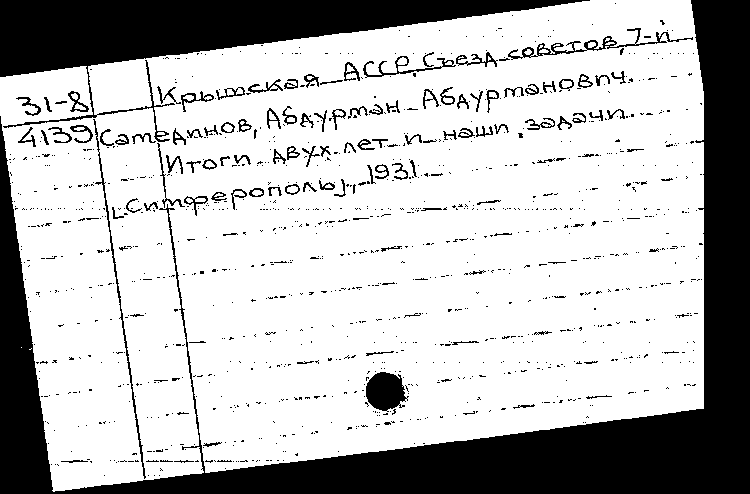 Крымская АССР. Съезд советов, 7-й
31-8
4139 Самединов, Абдурман Абдурманович.
Итоги двух лет и наши задачи.
[Симферополь], 1931.